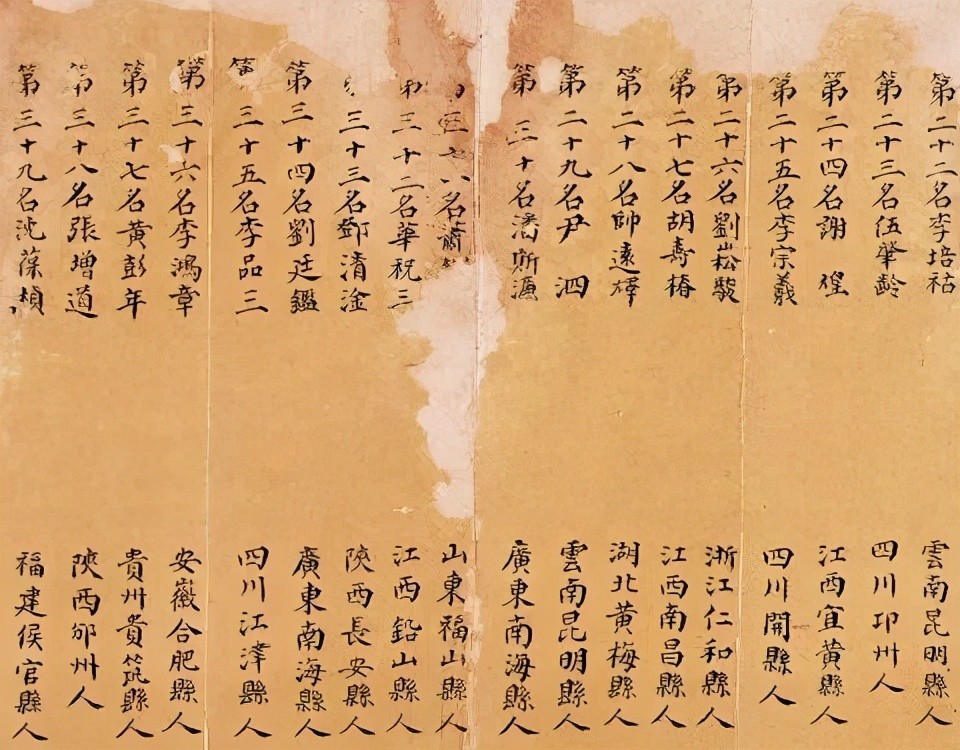 第二十二名李培祜 雲南昆明縣人
第二十三名伍肇齡 四川邛州人
第二十四名謝煌 江西宜黃縣人
第二十五名李宗羲 四川開縣人
第二十六名劉崧駿 浙江仁和縣人
第二十七名胡壽椿 江西南昌縣人
第二十八名帥遠燡 湖北黃梅縣人
第二十九名尹泗 雲南昆明縣人
第三十名潘斯濂 廣東南海縣人
名蕭 山東福山縣人
三十二名華祝三 江西鉛山縣人
三十三名鄧清淦 陝西長安縣人
第三十四名劉廷鑑 廣東南海縣人
第三十五名李品三 四川江津縣人
第三十六名李鴻章 安徽合肥縣人
第三十七名黃彭年 貴州貴筑縣人
第三十八名張增道 陝西邠州人
第三十九名沈葆楨 福建侯官縣人